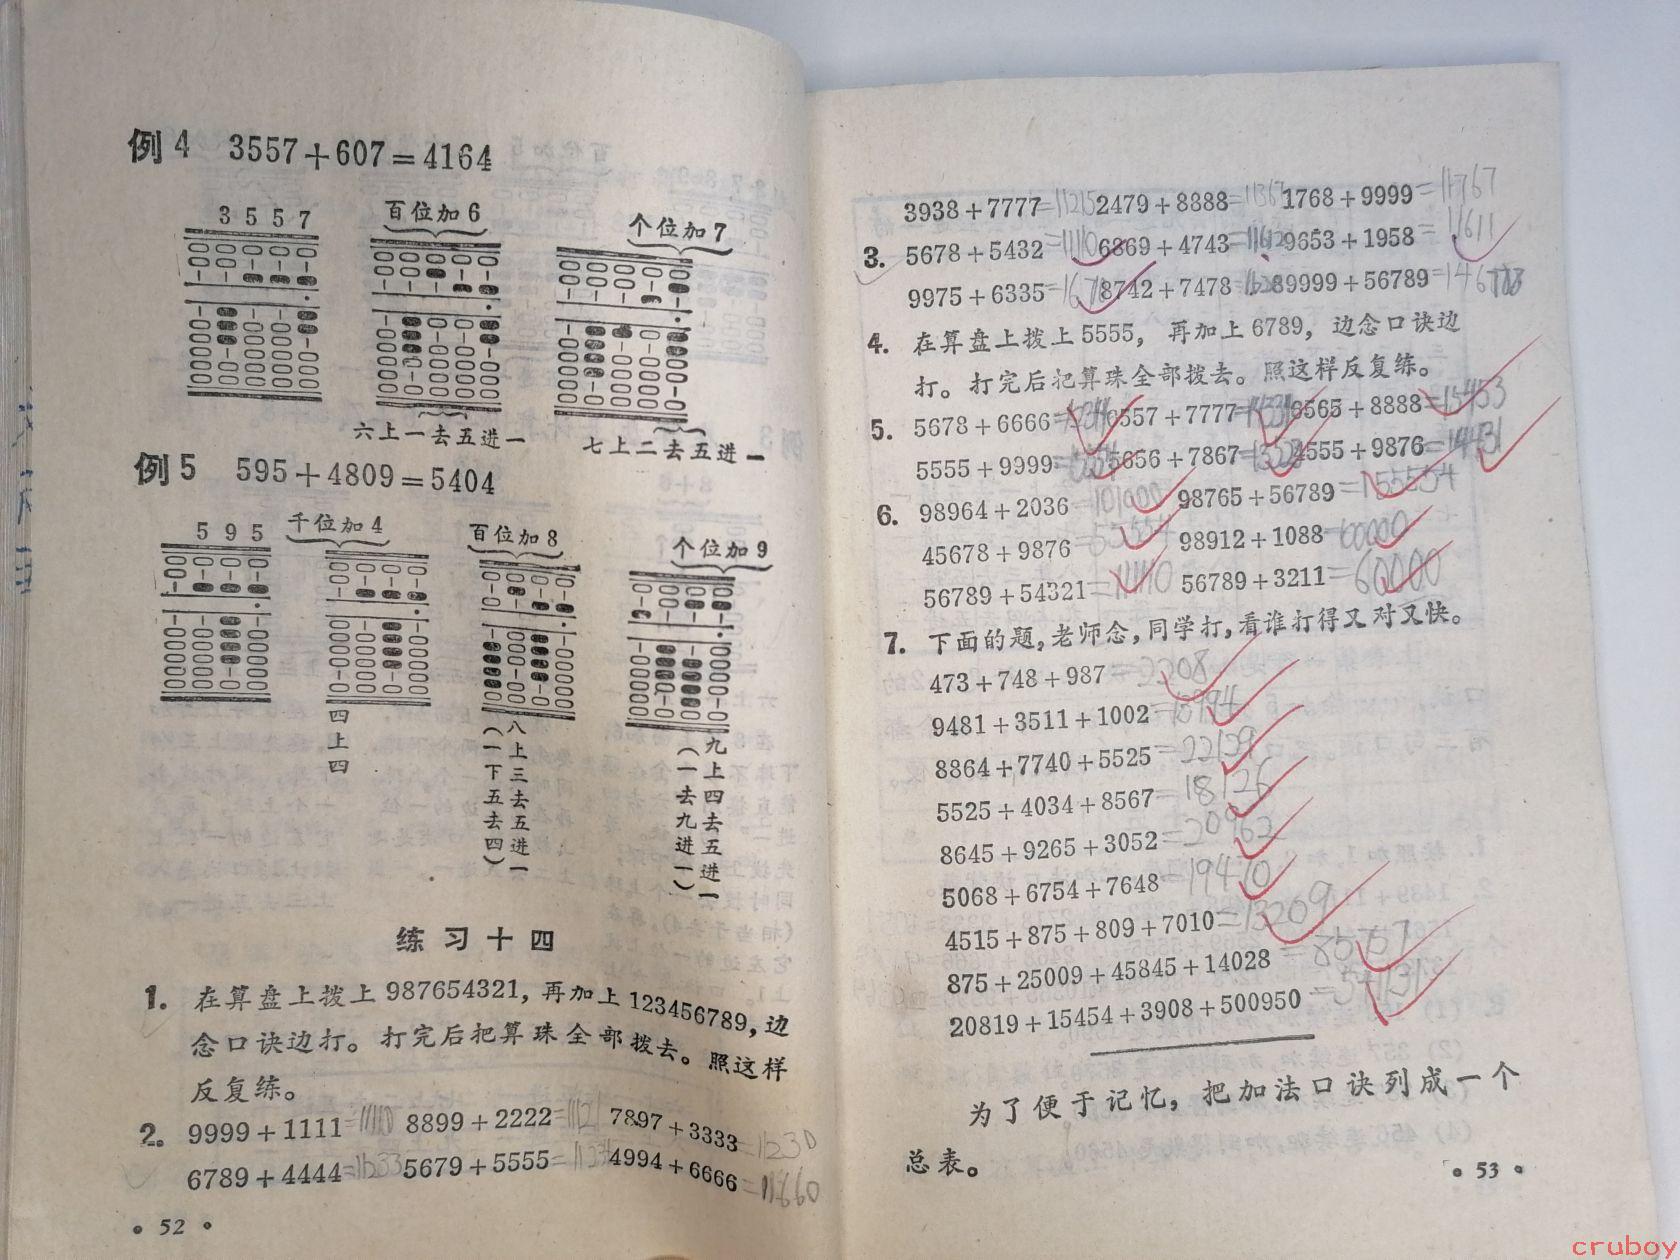 例4 3557+607=4164
3 5 5 7
百位加6
个位加7
六上一去五进一
七上二去五进一
例5 595+4809=5404
5 9 5
千位加4
百位加8
个位加9
四上四
八上三去五进一
(一下五去四)
九上四去五进一
(一去九进一)
练习十四
1. 在算盘上拨上987654321,再加上123456789,边
念口诀边打。打完后把算珠全部拨去。照这样
反复练。
2. 9999+1111=11110 8899+2222=11121 7897+3333=11230
6789+4444=11233 5679+5555=11234 4994+6666=11660
• 52 •
3938+7777=11215 2479+8888=11367 1768+9999=11767
3. 5678+5432=11110 6869+4743=11612 9653+1958=11611
9975+6335= 8742+7478= 89999+56789=
4. 在算盘上拨上5555,再加上6789,边念口诀边
打。打完后把算珠全部拨去。照这样反复练。
5. 5678+6666=12344 6557+7777=14334 6565+8888=15453
5555+9999= 5656+7867= 4555+9876=14431
6. 98964+2036=101000 98765+56789=155554
45678+9876=55554 98912+1088=
56789+54321=111110 56789+3211=60000
7. 下面的题,老师念,同学打,看谁打得又对又快。
473+748+987=2208
9481+3511+1002=13994
8864+7740+5525=22129
5525+4034+8567=18126
8645+9265+3052=20962
5068+6754+7648=19470
4515+875+809+7010=13209
875+25009+45845+14028=85757
20819+15454+3908+500950=541131
为了便于记忆,把加法口诀列成一个
总表。
• 53 •
cruboy